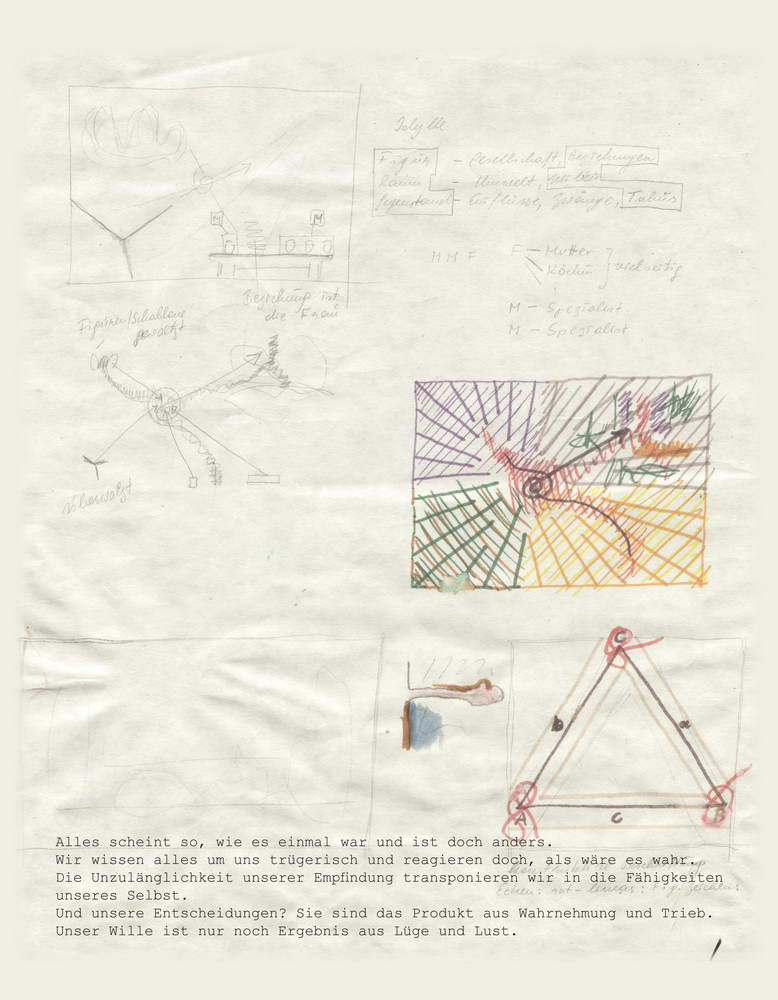 Idylle
Figur – Gesellschaft, Beziehungen
Raum – Umwelt,
Gegenstand – Einflüsse, Zwänge, Tabus
M M F
F – Mutter
Köchin
vielseitig
M – Spezialist
M – Spezialist
M
M
Beziehung ist
die Frau
Figuren/Schablone
gewalzt
C
b
a
A
c
B
Alles scheint so, wie es einmal war und ist doch anders.
Wir wissen alles um uns trügerisch und reagieren doch, als wäre es wahr.
Die Unzulänglichkeit unserer Empfindung transponieren wir in die Fähigkeiten
unseres Selbst.
Und unsere Entscheidungen? Sie sind das Produkt aus Wahrnehmung und Trieb.
Unser Wille ist nur noch Ergebnis aus Lüge und Lust.